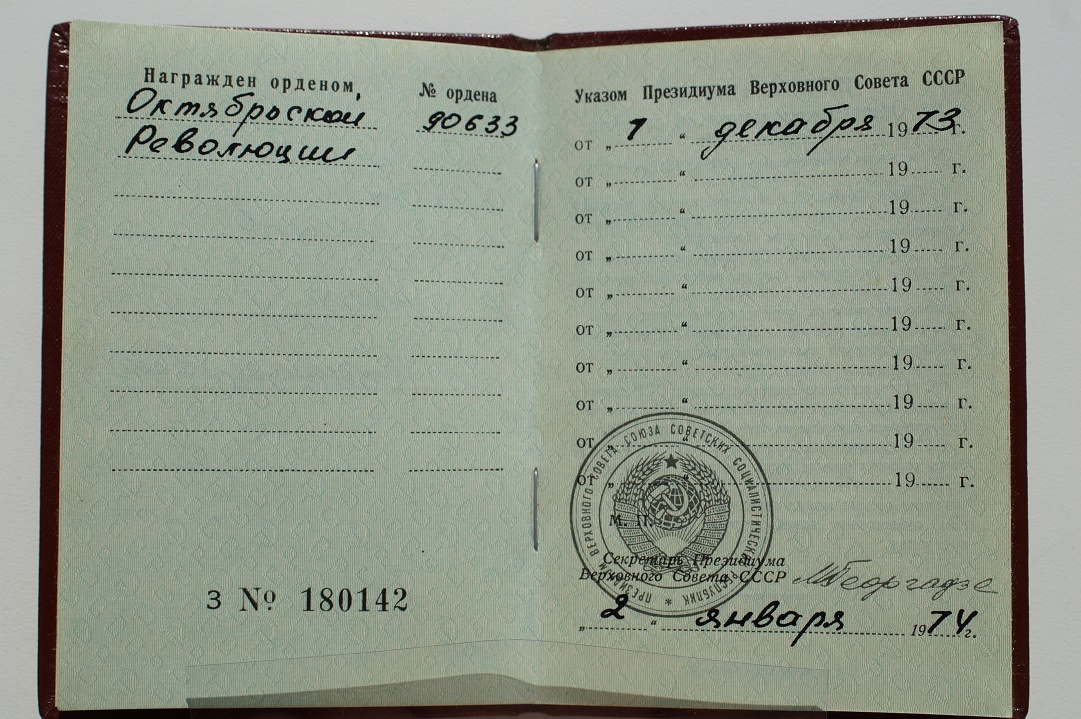 Награжден орденом,
Октябрьской
Революции
№ ордена
90633
З № 180142
Указом Президиума Верховного Совета СССР
от „ 1 “ декабря 1973 г.
от „ “ 19 г.
от „ “ 19 г.
от „ “ 19 г.
от „ “ 19 г.
от „ “ 19 г.
от „ “ 19 г.
от „ “ 19 г.
от „ “ 19 г.
от „ “ 19 г.
ПРЕЗИДИУМ ВЕРХОВНОГО СОВЕТА СОЮЗА СОВЕТСКИХ СОЦИАЛИСТИЧЕСКИХ РЕСПУБЛИК *
М. П.
Секретарь Президиума
Верховного Совета СССР МГеоргадзе
„ 2 “ января 1974 г.